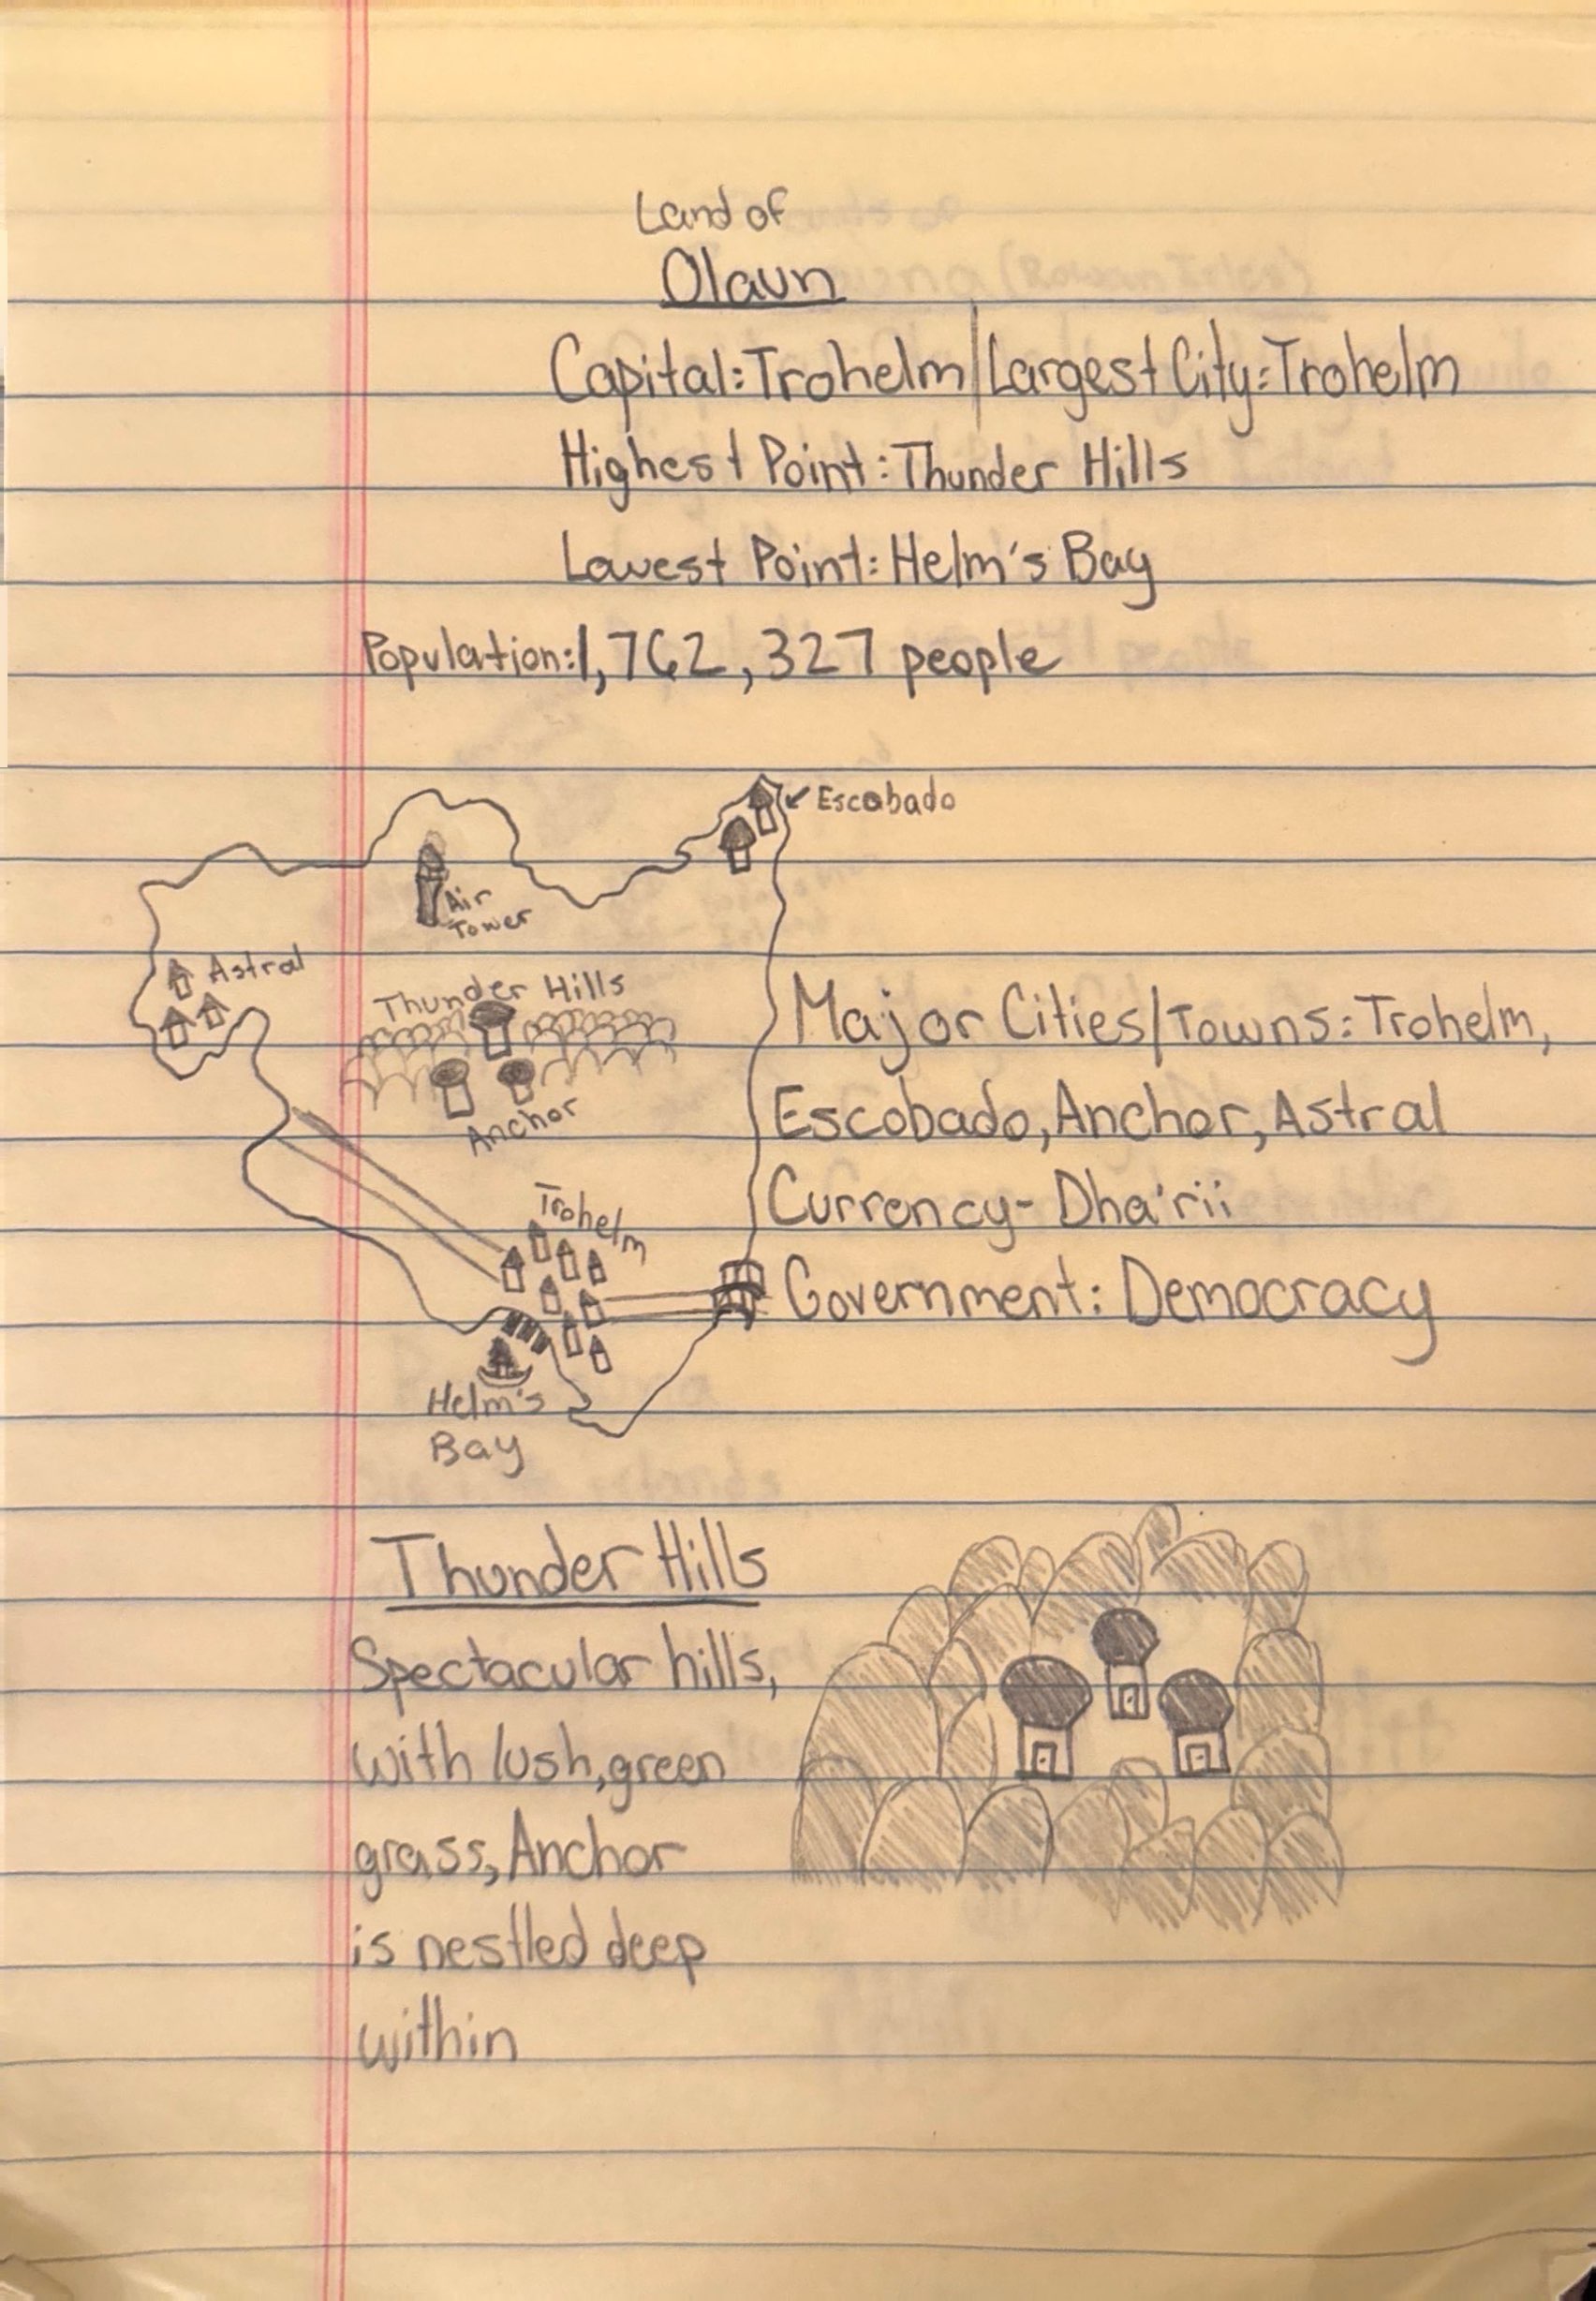 Land of
Olaun
Capital: Trohelm | Largest City: Trohelm
Highest Point: Thunder Hills
Lowest Point: Helm's Bay
Population: 1,762,327 people
Escobado
Air
Tower
Astral
Thunder Hills
Anchor
Trohelm
Helm's
Bay
Major Cities/Towns: Trohelm,
Escobado, Anchor, Astral
Currency- Dha'rii
Government: Democracy
Thunder Hills
Spectacular hills,
with lush, green
grass, Anchor
is nestled deep
within